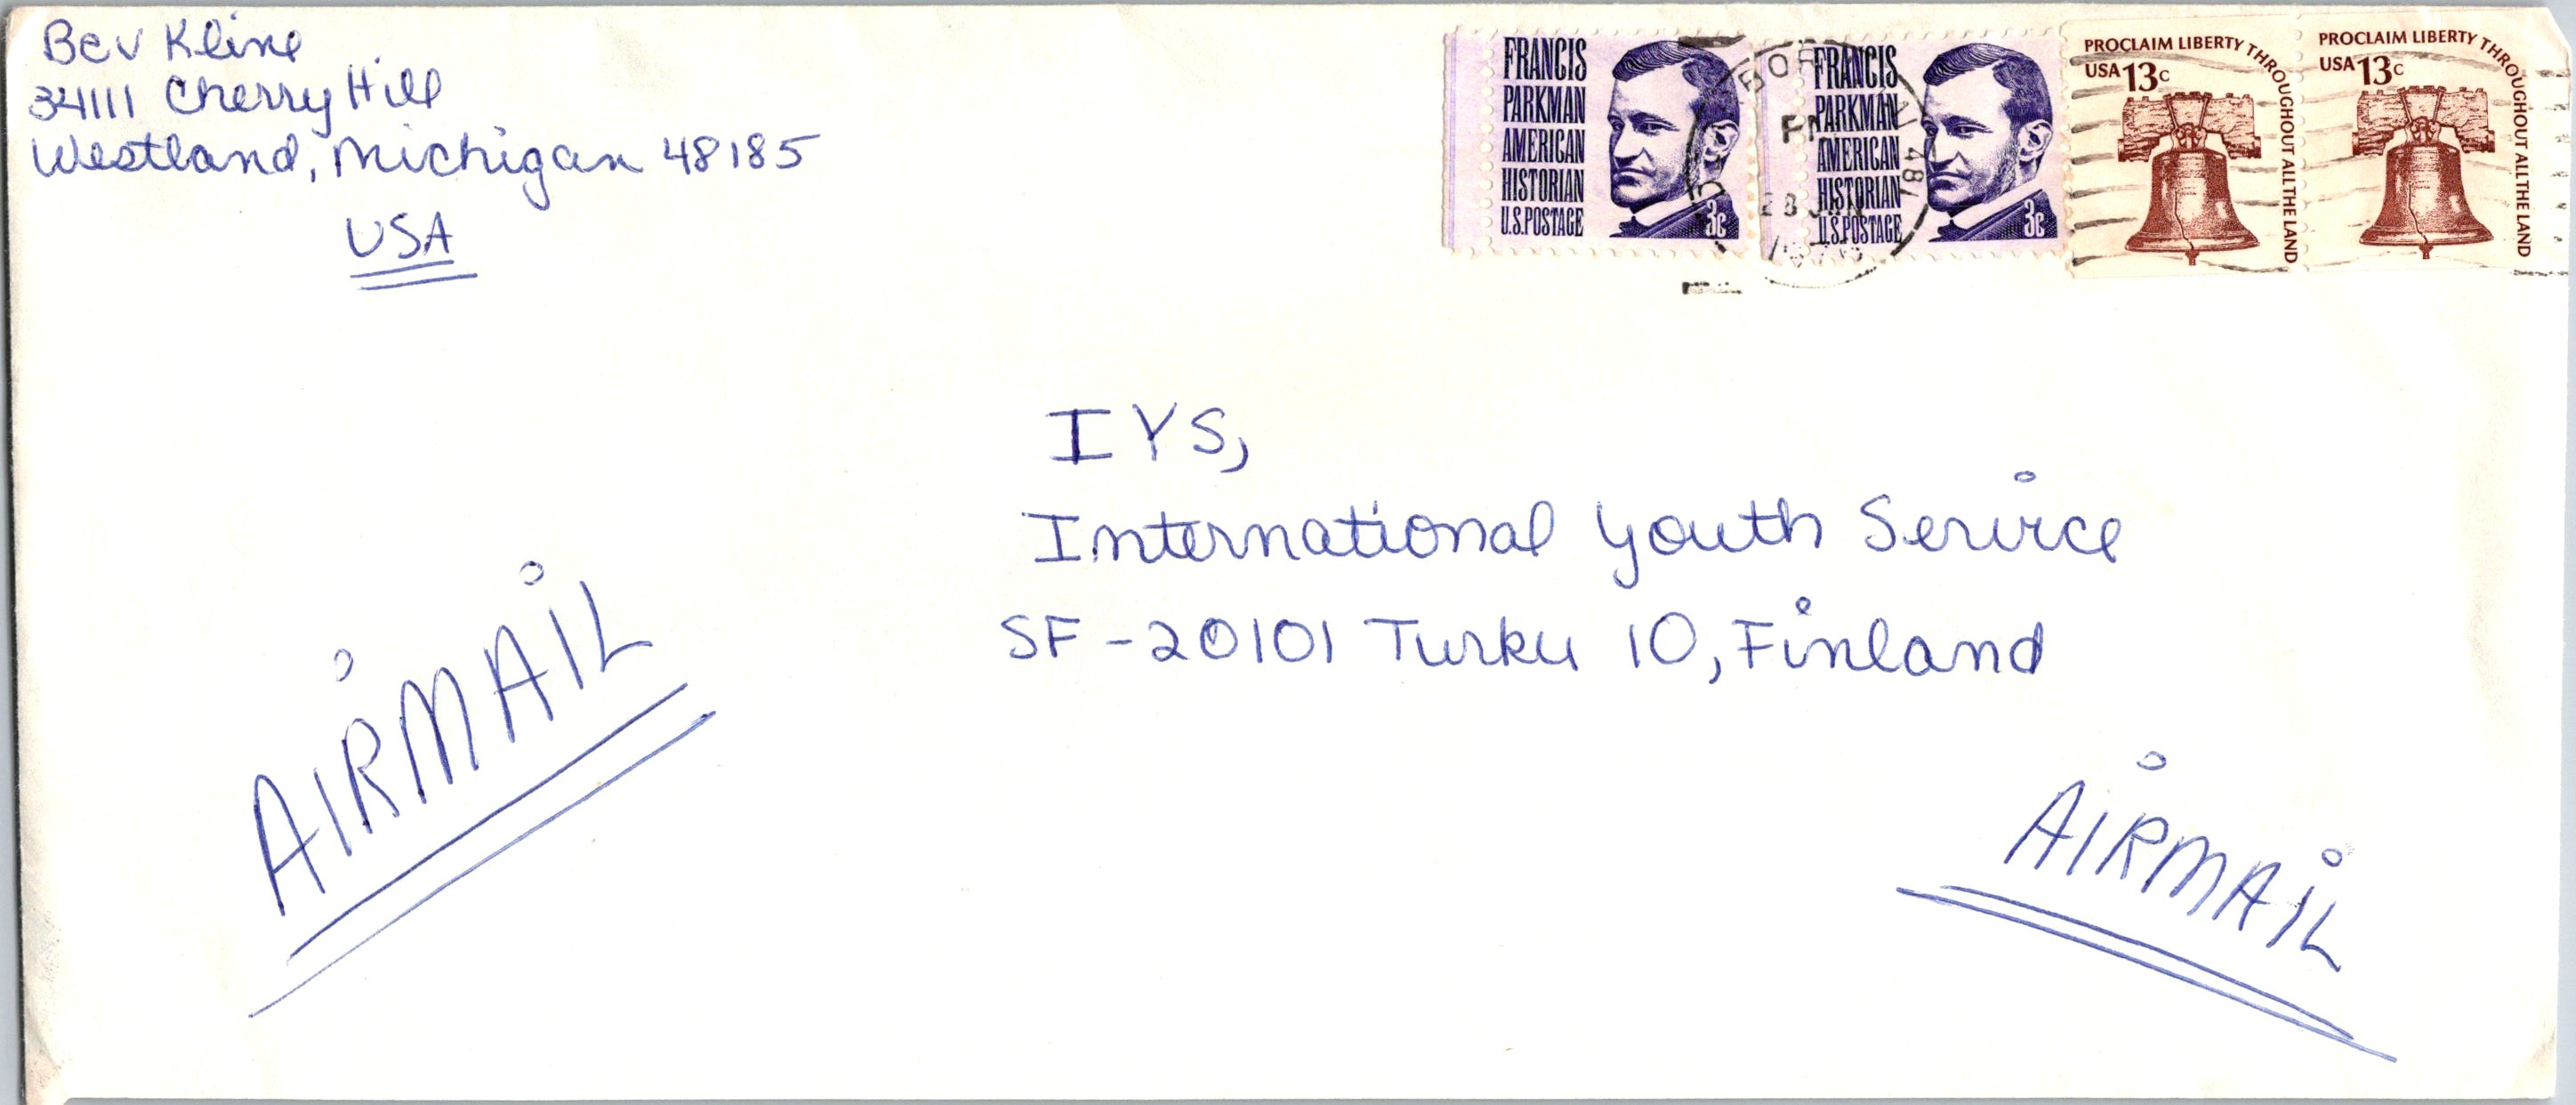 Bev Kline
34111 Cherry Hill
Westland, Michigan 48185
USA
FRANCIS
PARKMAN
AMERICAN
HISTORIAN
U.S.POSTAGE
3c
FRANCIS
PARKMAN
AMERICAN
HISTORIAN
U.S.POSTAGE
3c
PROCLAIM LIBERTY THROUGHOUT ALL THE LAND
USA 13c
PROCLAIM LIBERTY THROUGHOUT ALL THE LAND
USA 13c
28
IYS,
International Youth Service
SF-20101 Turku 10, Finland
AIRMAIL
AIRMAIL